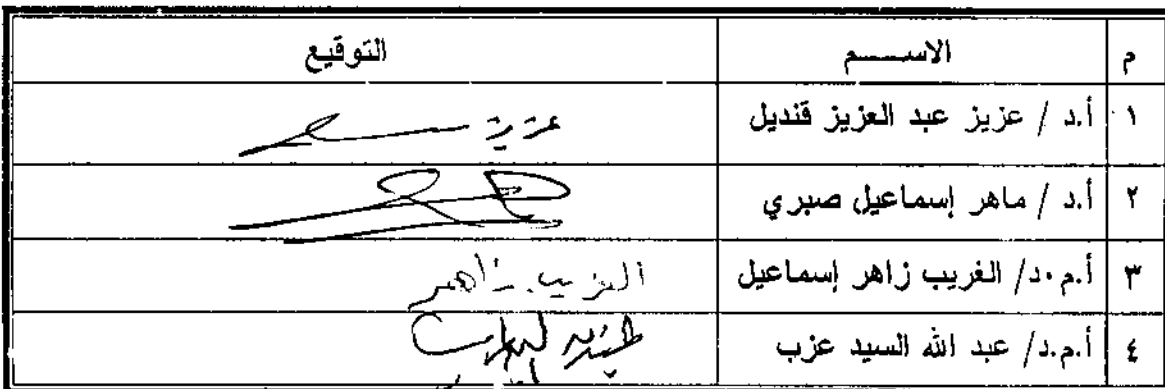 م الاســـم التوقيع
١ أ.د / عزيز عبد العزيز قنديل عزيز
٢ أ.د / ماهر إسماعيل صبري
٣ أ.م.د/ الغريب زاهر إسماعيل الغريب زاهر
٤ أ.م.د/ عبد الله السيد عزب